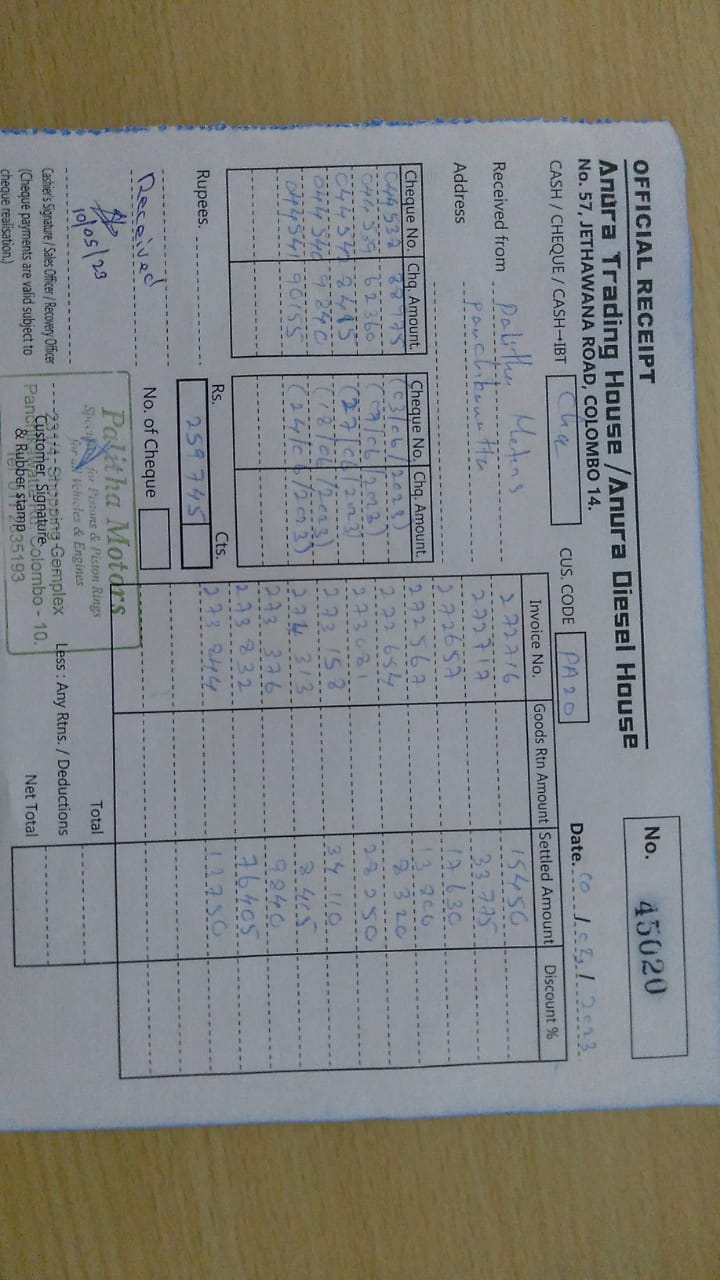 OFFICIAL RECEIPT
No. 45020
Anura Trading House / Anura Diesel House
No. 57, JETHAWANA ROAD, COLOMBO 14.
CASH / CHEQUE / CASH→IBT Chq CUS. CODE PA20 Date. / / 2023
Received from Palitha Motors
Address Panchikawatta
Invoice No. Goods Rtn Amount Settled Amount Discount %
272716 15450
272717 33775
272657 17630
272567 13800
272654 8320
273081 28250
273158 34110
274313 8415
273376 9240
273832 76405
273844 13750
Cheque No. Chq. Amount. Cheque No. Chq. Amount.
044537 (03/06/2023)
044539 62360 (09/06/2023)
8415 (27/06/2023)
044540 9240 (18/06/2023)
044541 90155 (24/06/2023)
Rupees. Rs. 259745 Cts.
Received No. of Cheque
10/05/23
Cashier's Signature / Sales Officer / Recovery Officer
(Cheque payments are valid subject to
cheque realisation.)
Customer Signature
& Rubber stamp
Palitha Motors
Specialist for Pistons & Piston Rings
for all Vehicles & Engines
231/4, Shopping Complex
Colombo - 10.
Tel: 011 2635193
Total
Less : Any Rtns. / Deductions
Net Total